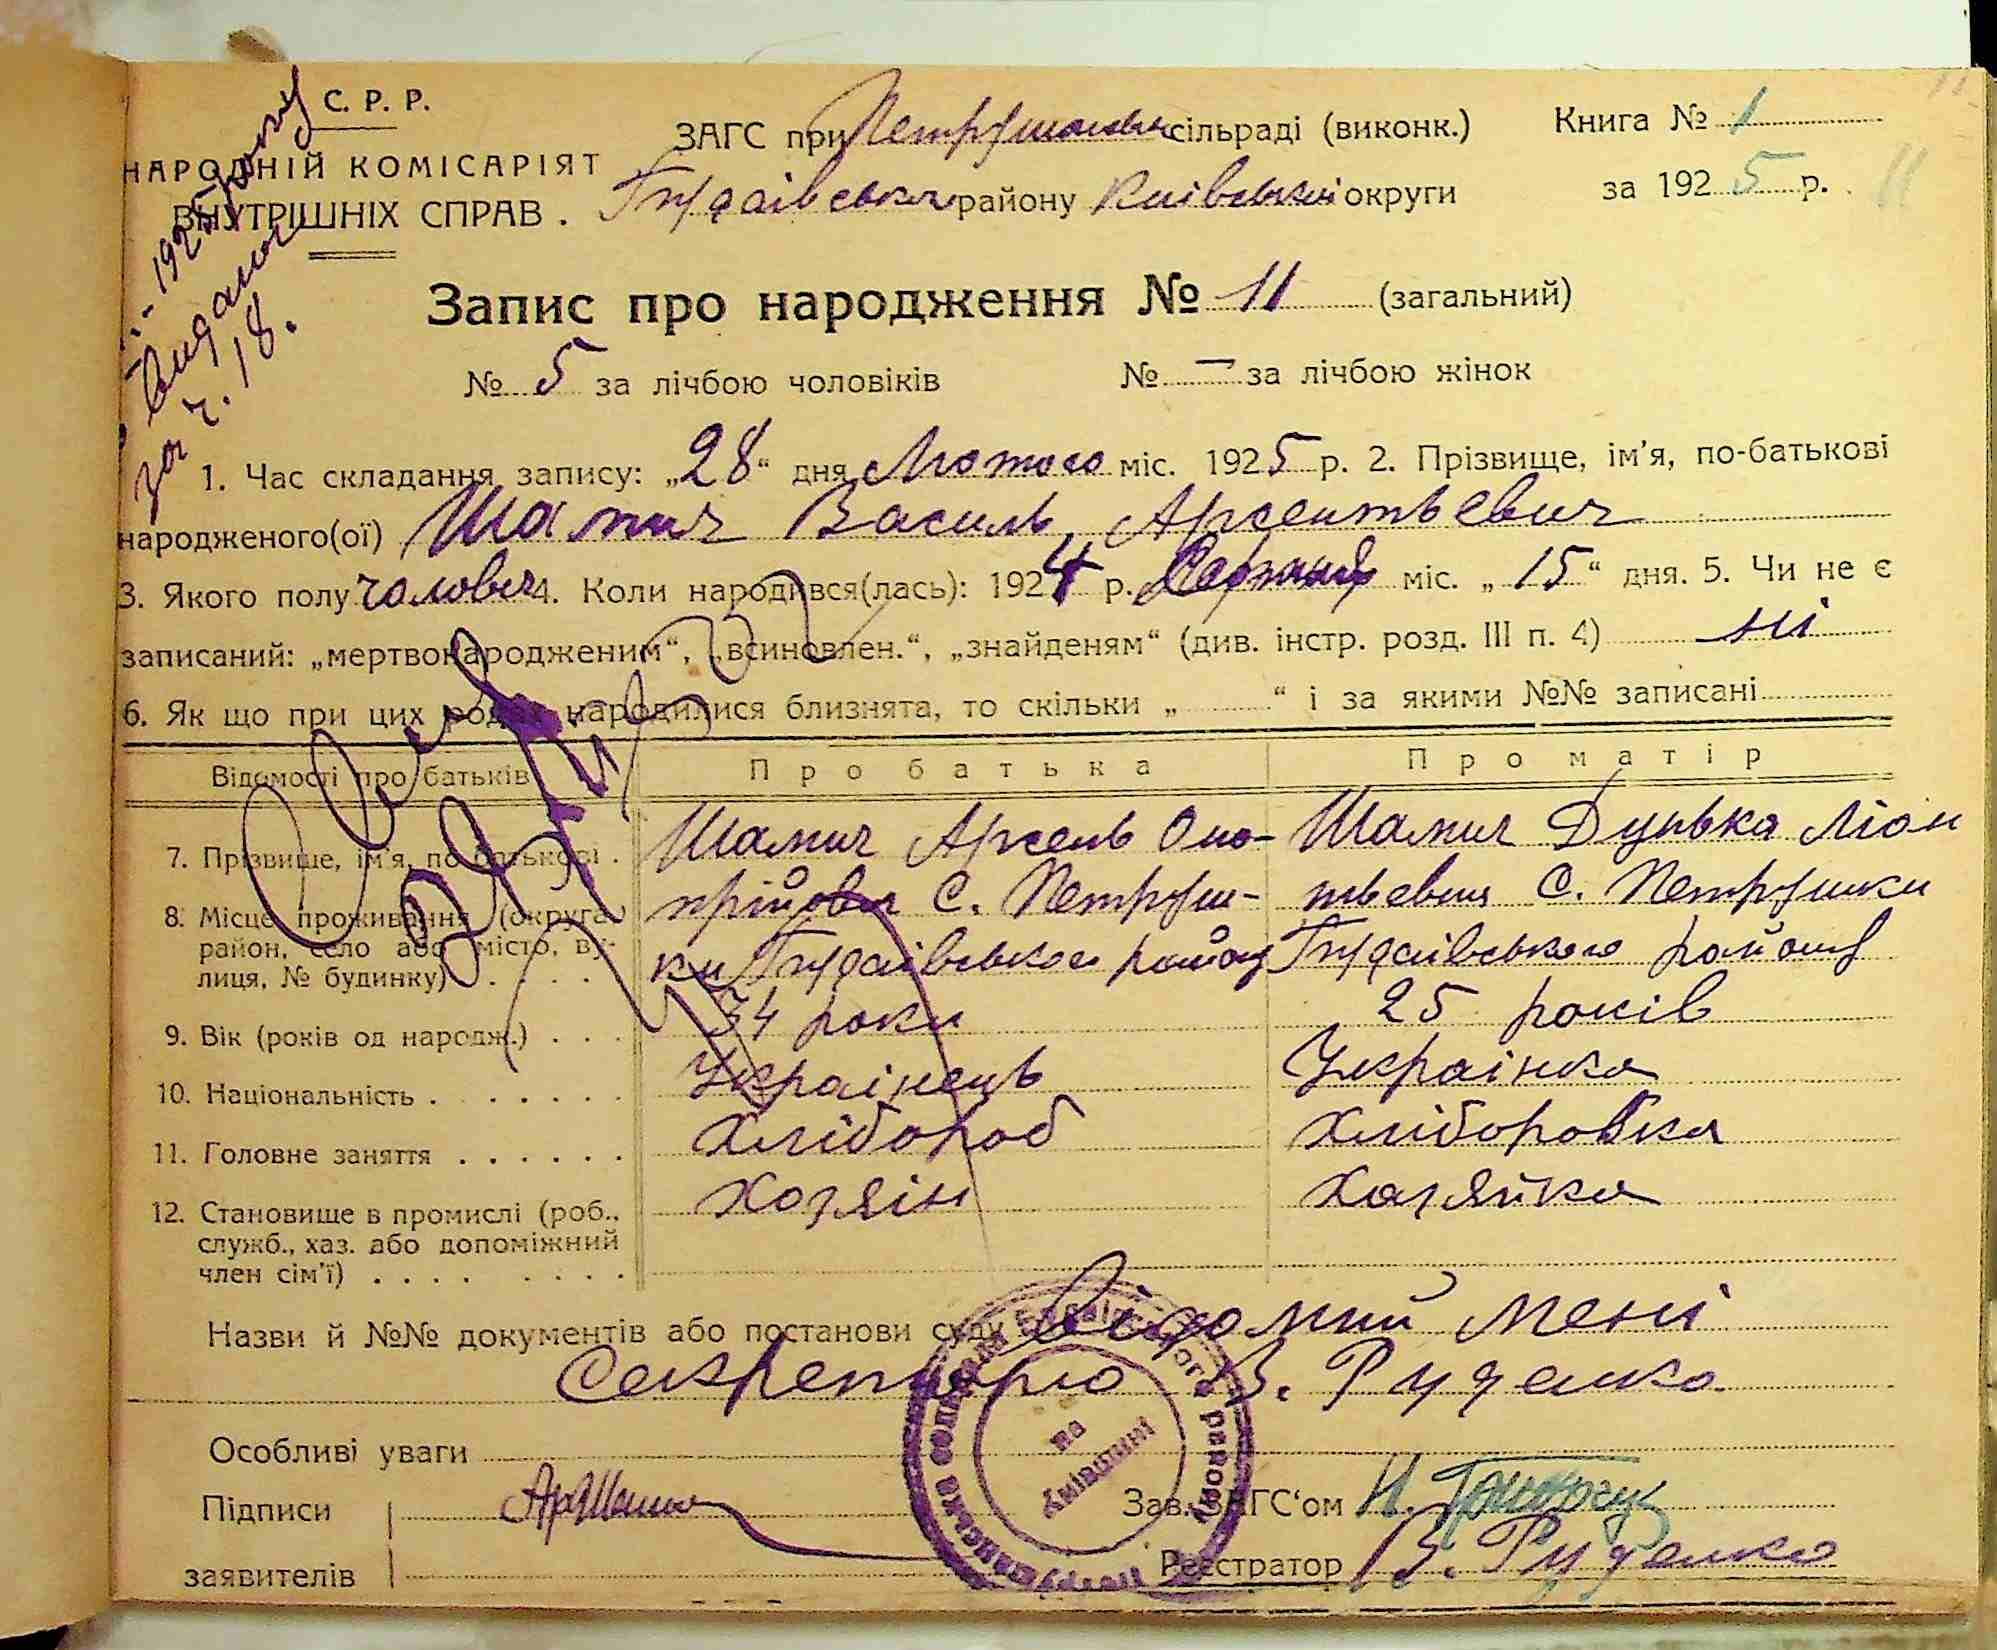 С. Р. Р.
НАРОДНІЙ КОМІСАРІЯТ
ВНУТРІШНІХ СПРАВ.
ЗАГС при Петрушанській сільраді (виконк.)
Будаівського району Київської округи
Книга № 1
за 1925 р.
11
видано
за ч. 18.
Запис про народження № 11 (загальний)
№ 5 за лічбою чоловіків № — за лічбою жінок
1. Час складання запису: „28“ дня Лютого міс. 1925 р. 2. Прізвище, ім'я, по-батькові
народженого(ої) Шамич Василь Арсентьевич
3. Якого полу чоловіч 4. Коли народився(лась): 1924 р. Серпня міс. „15“ дня. 5. Чи не є
записаний: „мертвонародженим“, „всиновлен.“, „знайденям“ (див. інстр. розд. III п. 4) ні
6. Як що при цих родах народилися близнята, то скільки „ “ і за якими №№ записані
Відомості про батьків Про батька Про матір
7. Прізвище, ім'я, по батькові . Шамич Арсень Оно- Шамич Дунька Ліон
8. Місце проживання (округа, прійович С. Петруш- тьевна С. Петрушки
район, село або місто, ву- ки Будаівського району Будаівського району
лиця, № будинку) . . . .
9. Вік (років од народж.) . . . 34 роки 25 років
10. Національність . . . . . . . Украінець Украінка
11. Головне заняття . . . . . . Хлібороб Хліборобка
12. Становище в промислі (роб., Хозяін Хазяйка
служб., хаз. або допоміжний
член сім'ї) . . . . . . . .
Назви й №№ документів або постанови суду Відомий мені
Секретарю В. Руденко.
Особливі уваги
Підписи
заявителів
Зав. ЗАГС'ом
Реєстратор В. Руденко
Петрушанська сольрада Будаівського району
на Київщині